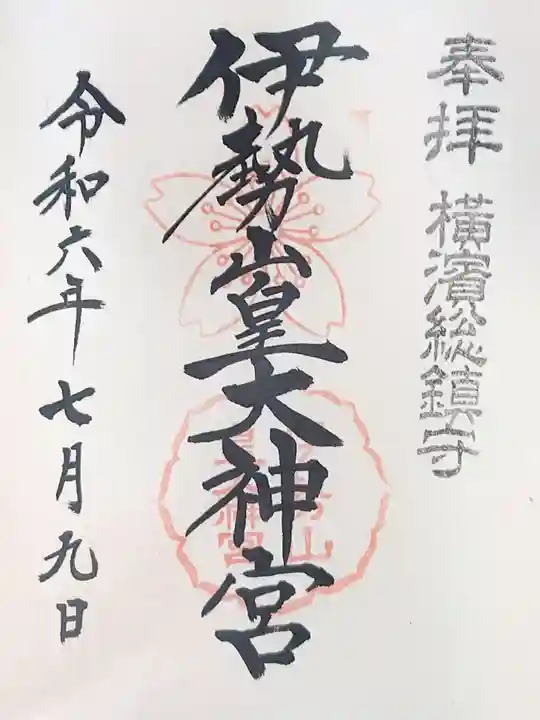 奉拝 横濱総鎮守
伊勢山皇大神宮
令和六年七月九日